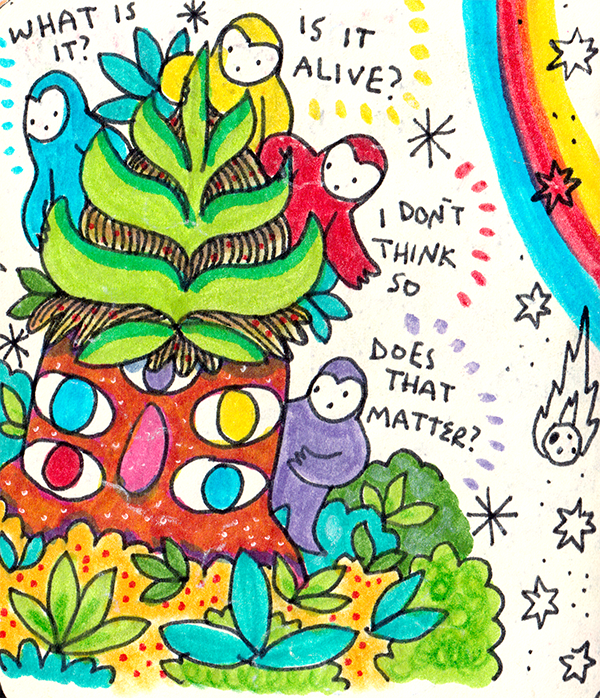 WHAT IS
IT?
IS IT
ALIVE?
I DON'T
THINK
SO
DOES
THAT
MATTER?